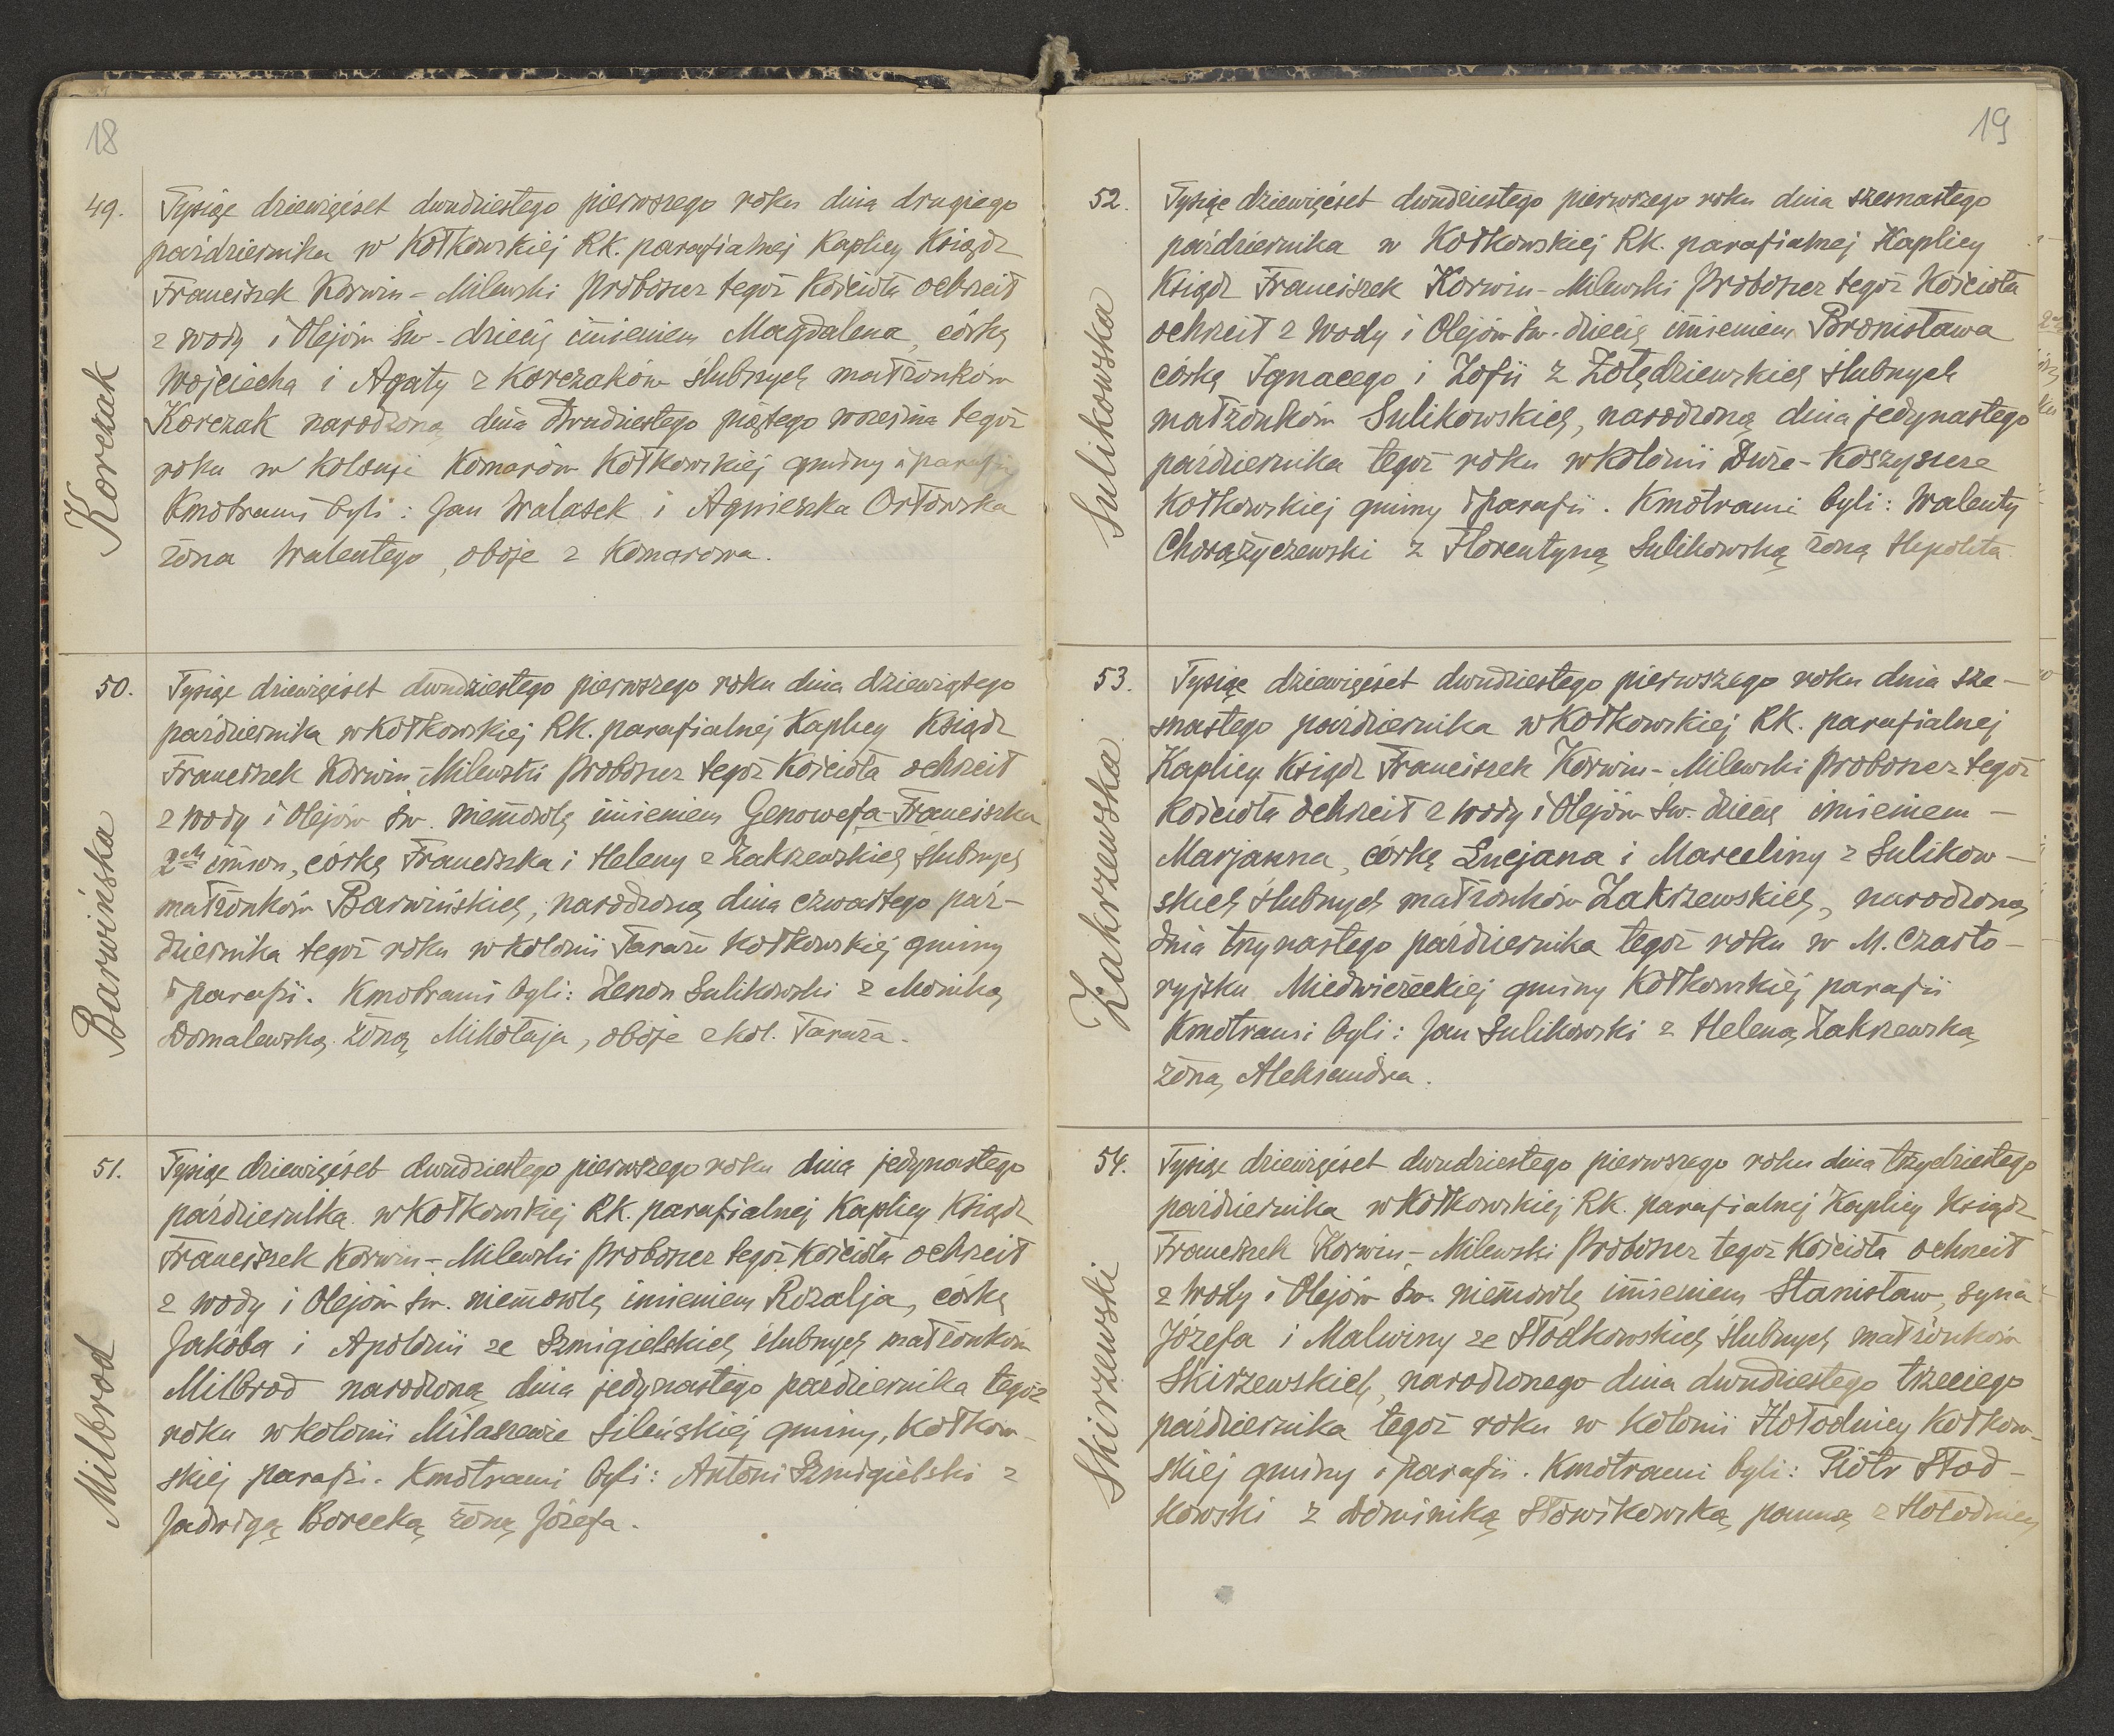 18
49.
Korczak
Tysiąc dziewięćset dwudziestego pierwszego roku dnia drugiego
października w Kołkowskiej RK. parafialnej Kaplicy Ksiądz
Franciszek Korwin-Milewski Proboszcz tegoż Kościoła ochrzcił
z wody i Olejów św. dziecię imieniem Magdalena, córkę
Wojciecha i Agaty z Korczaków ślubnych małżonków
Korczak narodzoną dnia dwudziestego piątego września tegoż
roku w kolonji Komarów Kołkowskiej gminy i parafji
Kmotrami byli: Jan Walasek i Agnieszka Orłowska
żona Walentego, oboje z Komarowa.
50.
Barwińska
Tysiąc dziewięćset dwudziestego pierwszego roku dnia dziewiątego
października w Kołkowskiej RK. parafialnej Kaplicy Ksiądz
Franciszek Korwin-Milewski Proboszcz tegoż Kościoła ochrzcił
z wody i Olejów św. niemowlę imieniem Genowefa-Franciszka
2ch imion, córkę Franciszka i Heleny z Zakrzewskich ślubnych
małżonków Barwińskich, narodzoną dnia czwartego paź-
dziernika tegoż roku w kolonii Taraż Kołkowskiej gminy
i parafii. Kmotrami byli: Zenon Sulikowski z Moniką
Domalewską żoną Mikołaja, oboje z kol. Taraża.
51.
Milbrod
Tysiąc dziewięćset dwudziestego pierwszego roku dnia jedynastego
października w Kołkowskiej RK. parafialnej Kaplicy Ksiądz
Franciszek Korwin-Milewski Proboszcz tegoż Kościoła ochrzcił
z wody i Olejów św. niemowlę imieniem Rozalja, córkę
Jakóba i Apolonii ze Szmigielskich ślubnych małżonków
Milbrod narodzoną dnia jedynastego października tegoż
roku w kolonii Milaszewie Sileńskiej gminy, Kołkow-
skiej parafii. Kmotrami byli: Antoni Szmigielski z
Jadwigą Borecką żoną Józefa.
19
52.
Sulikowska
Tysiąc dziewięćset dwudziestego pierwszego roku dnia szesnastego
października w Kołkowskiej RK. parafialnej Kaplicy
Ksiądz Franciszek Korwin-Milewski Proboszcz tegoż Kościoła
ochrzcił z wody i Olejów św. dziecię imieniem Bronisława
córkę Ignacego i Zofii z Żołędziewskich ślubnych
małżonków Sulikowskich, narodzoną dnia jedynastego
października tegoż roku w kolonii Duże-Koszyszcze
Kołkowskiej gminy i parafii. Kmotrami byli: Walenty
Chorążyczewski z Florentyną Sulikowską żoną Hipolita.
53.
Zakrzewska
Tysiąc dziewięćset dwudziestego pierwszego roku dnia sze-
snastego października w Kołkowskiej RK. parafialnej
Kaplicy Ksiądz Franciszek Korwin-Milewski Proboszcz tegoż
Kościoła ochrzcił z wody i Olejów św. dziecię imieniem -
Marjanna, córkę Lucjana i Marceliny z Sulikow-
skich ślubnych małżonków Zakrzewskich, narodzoną
dnia trzynastego października tegoż roku w M. Czarto-
ryjsku Miedwieżeckiej gminy Kołkowskiej parafii
Kmotrami byli: Jan Sulikowski z Heleną Zakrzewską
żoną Aleksandra.
54.
Skirzewski
Tysiąc dziewięćset dwudziestego pierwszego roku dnia trzydziestego
października w Kołkowskiej RK. parafialnej Kaplicy Ksiądz
Franciszek Korwin-Milewski Proboszcz tegoż Kościoła ochrzcił
z wody i Olejów św. niemowlę imieniem Stanisław, syna
Józefa i Malwiny ze Słodkowskich ślubnych małżonków
Skirzewskich, narodzonego dnia dwudziestego trzeciego
października tegoż roku w kolonii Hołodnicy Kołkow-
skiej gminy i parafii. Kmotrami byli: Piotr Słod-
kowski z Dominiką Słowikowską panną z Hołodnicy